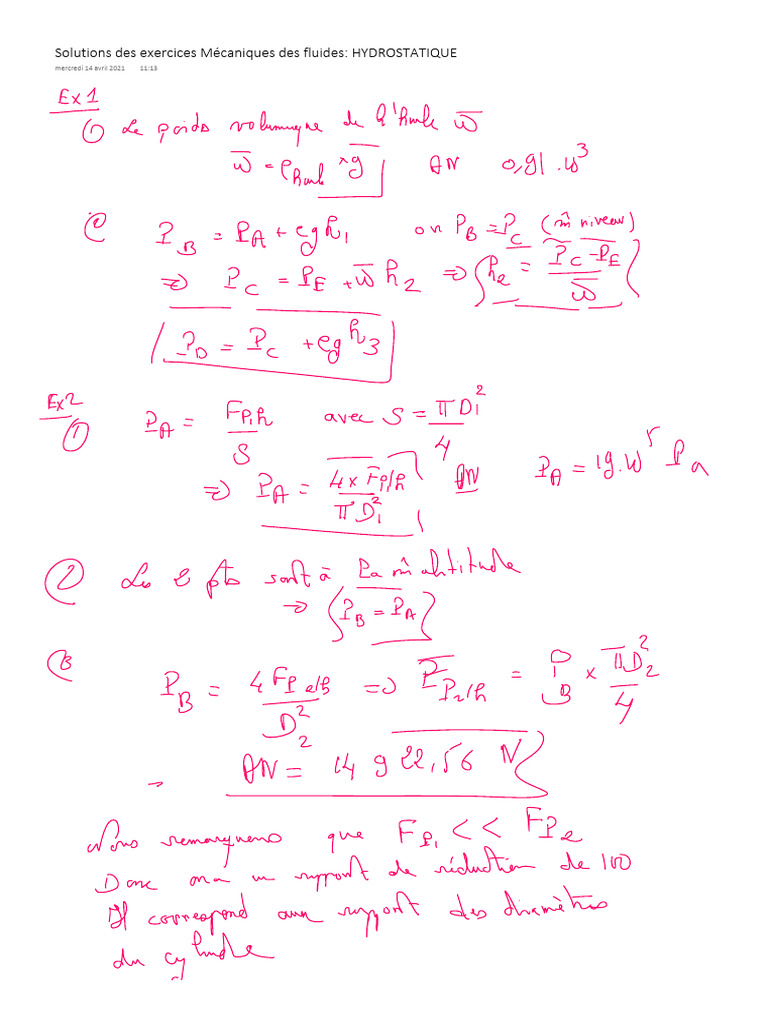 Solutions des exercices Mécaniques des fluides: HYDROSTATIQUE
mercredi 14 avril 2021 11:13
Ex1
① Le poids volumique de l'huile ω̅
ω̅ = ρhuile × g AN 0,91.10³
② P_B = P_A + ρgh₁ on P_B = P_C (m̂ niveau)
⇒ P_C = P_E + ω̅ h₂ ⇒ h₂ = (P_C - P_E)/ω̅
P_D = P_C + ρgh₃
Ex2
① P_A = F_P₁/h / S avec S = πD₁²/4
⇒ P_A = 4×F_P₁/h / πD₁² AN P_A = 19.10⁵ Pa
② Les 2 pts sont à la m̂ altitude
⇒ P_B = P_A
③ P_B = 4F_P₂/h / D₂² ⇒ F_P₂/h = P_B × πD₂²/4
AN = 14 922,56 N
Nous remarquons que F_P₁ << F_P₂
Donc on a un rapport de réduction de 100
Il correspond aux rapport des diamètres
du cylindre